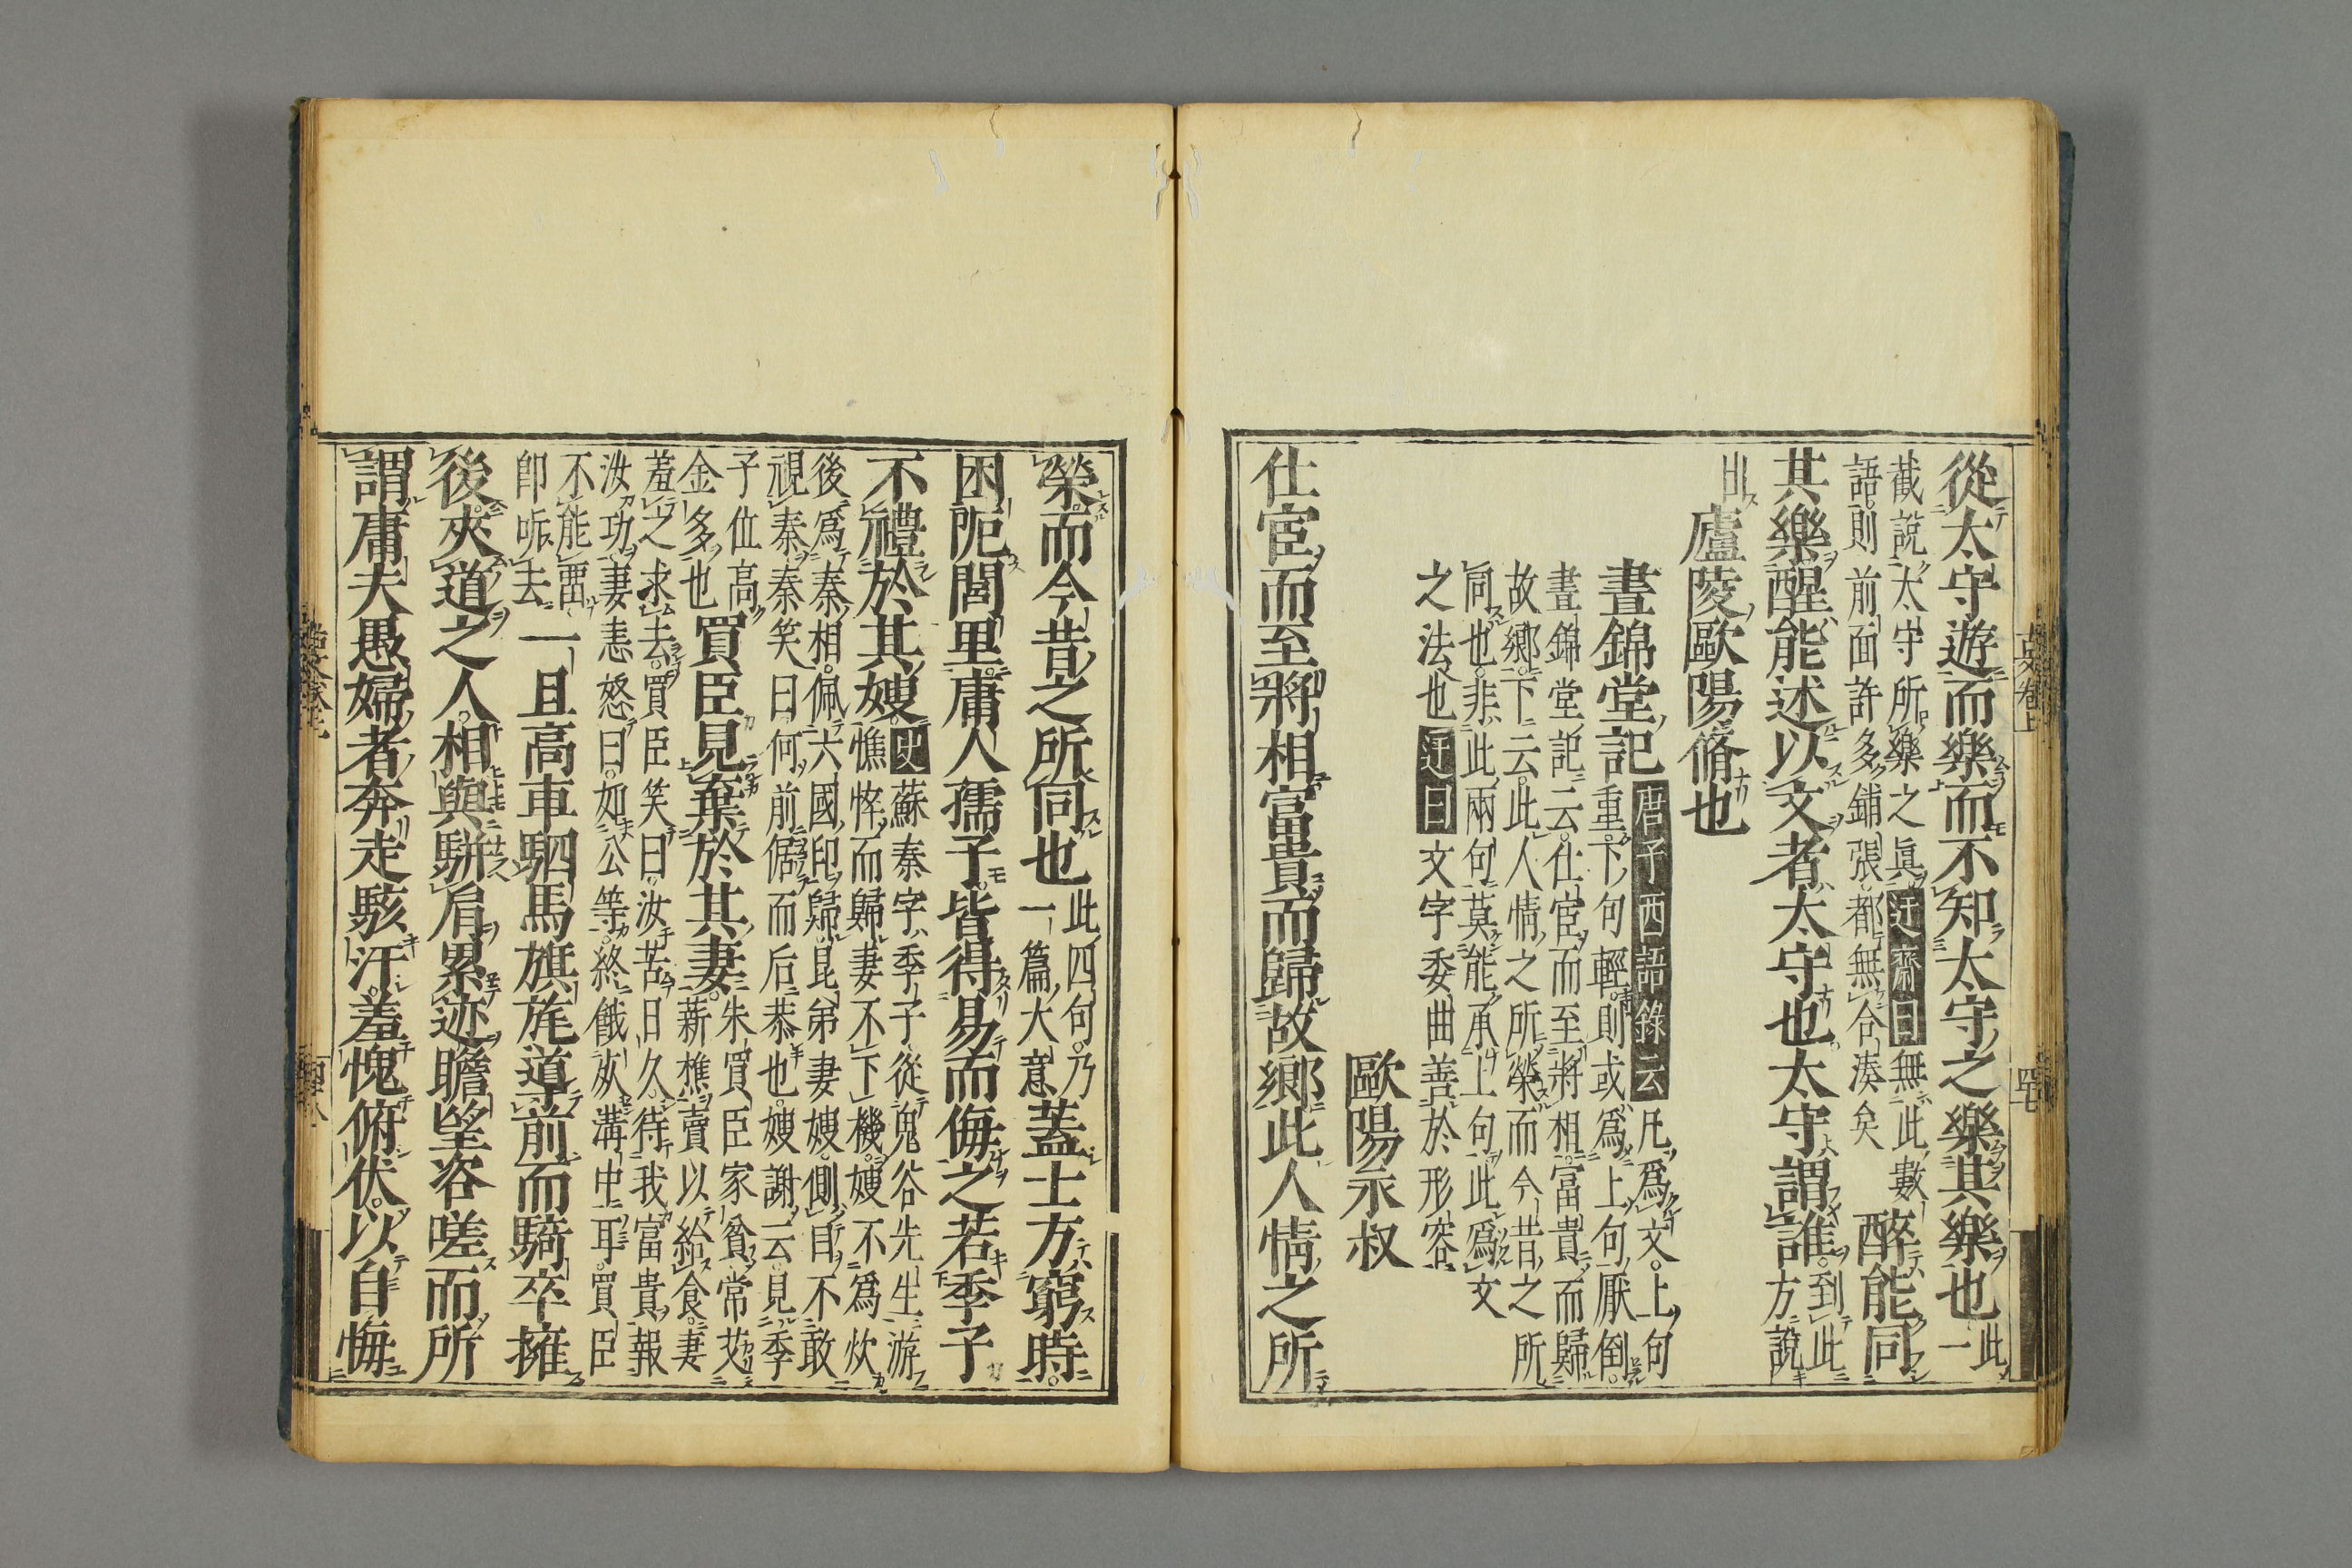 從太守遊而樂而不知太守之樂其樂也此一
截說太守所樂之眞迂齋曰無此數
語則前面許多鋪張都無合湊矣
醉能同
其樂醒能述以文者太守也太守謂誰到此
方說
出
廬陵歐陽脩也
晝錦堂記
重下句輕則或爲上句厭倒
唐子西語錄云凡爲文上句
晝錦堂記云仕宦而至將相富貴而歸
故鄉下云此人情之所榮而今昔之所
同也非此兩句莫能承上句此爲文
之法也迂曰文字委曲善於形容
歐陽永叔
仕宦而至將相富貴而歸故鄉此人情之所
榮而今昔之所同也此四句乃
一篇大意
蓋士方窮時
困阨閭里庸人孺子皆得易而侮之若季子
不禮於其嫂史蘇秦字季子從鬼谷先生游
憔悴而歸妻不下機嫂不爲炊
後爲秦相佩六國印歸昆弟妻嫂側目不敢
視秦秦笑曰何前倨而后恭也嫂謝云見季
子位高
金多也
買臣見棄於其妻朱買臣家貧常艾
薪樵賣以給食妻
羞之求去買臣笑曰汝苦日久待我富貴報
汝功妻恚怒曰如公等終餓死溝中耳買臣
不能
卽听去
一旦高車駟馬旗旄導前而騎卒擁
後夾道之人相與駢肩累迹瞻望咨嗟而所
謂庸夫愚婦者奔走駭汗羞愧俯伏以自悔